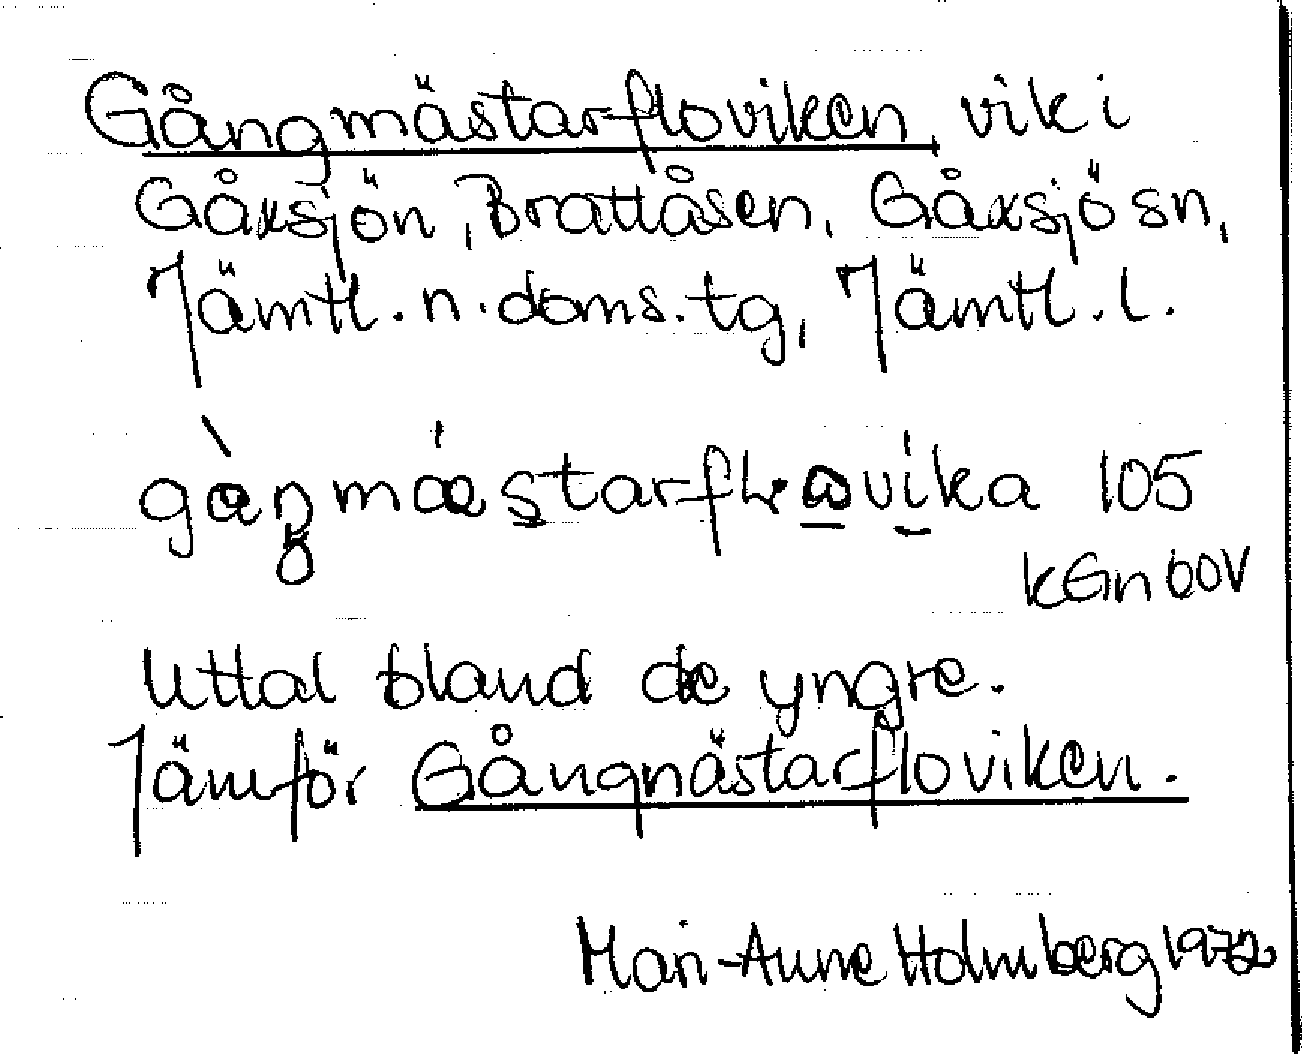 Gångmästarfloviken, vik i
Gåxsjön, Brattåsen, Gåxsjö sn,
Jämtl. n. doms. tg, Jämtl. l.
105
Uttal bland de yngre.
Jämför Gångnästarfloviken.
Mari-Anne Holmberg 1972